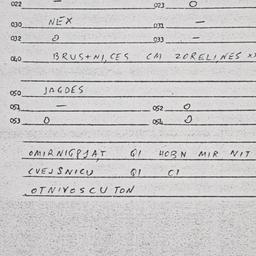 022 — 023 O
030 NEX 031 —
032 O 033 —
040 BRUS+NI,CES CM ZORELI,NES X
050 JAGDES
051 — 052 O
053 O 054 O
OMIRNIGPJAT GI HOBN MIR NIT
CVEJSNICU GI CI
OTNIVOSCU TON